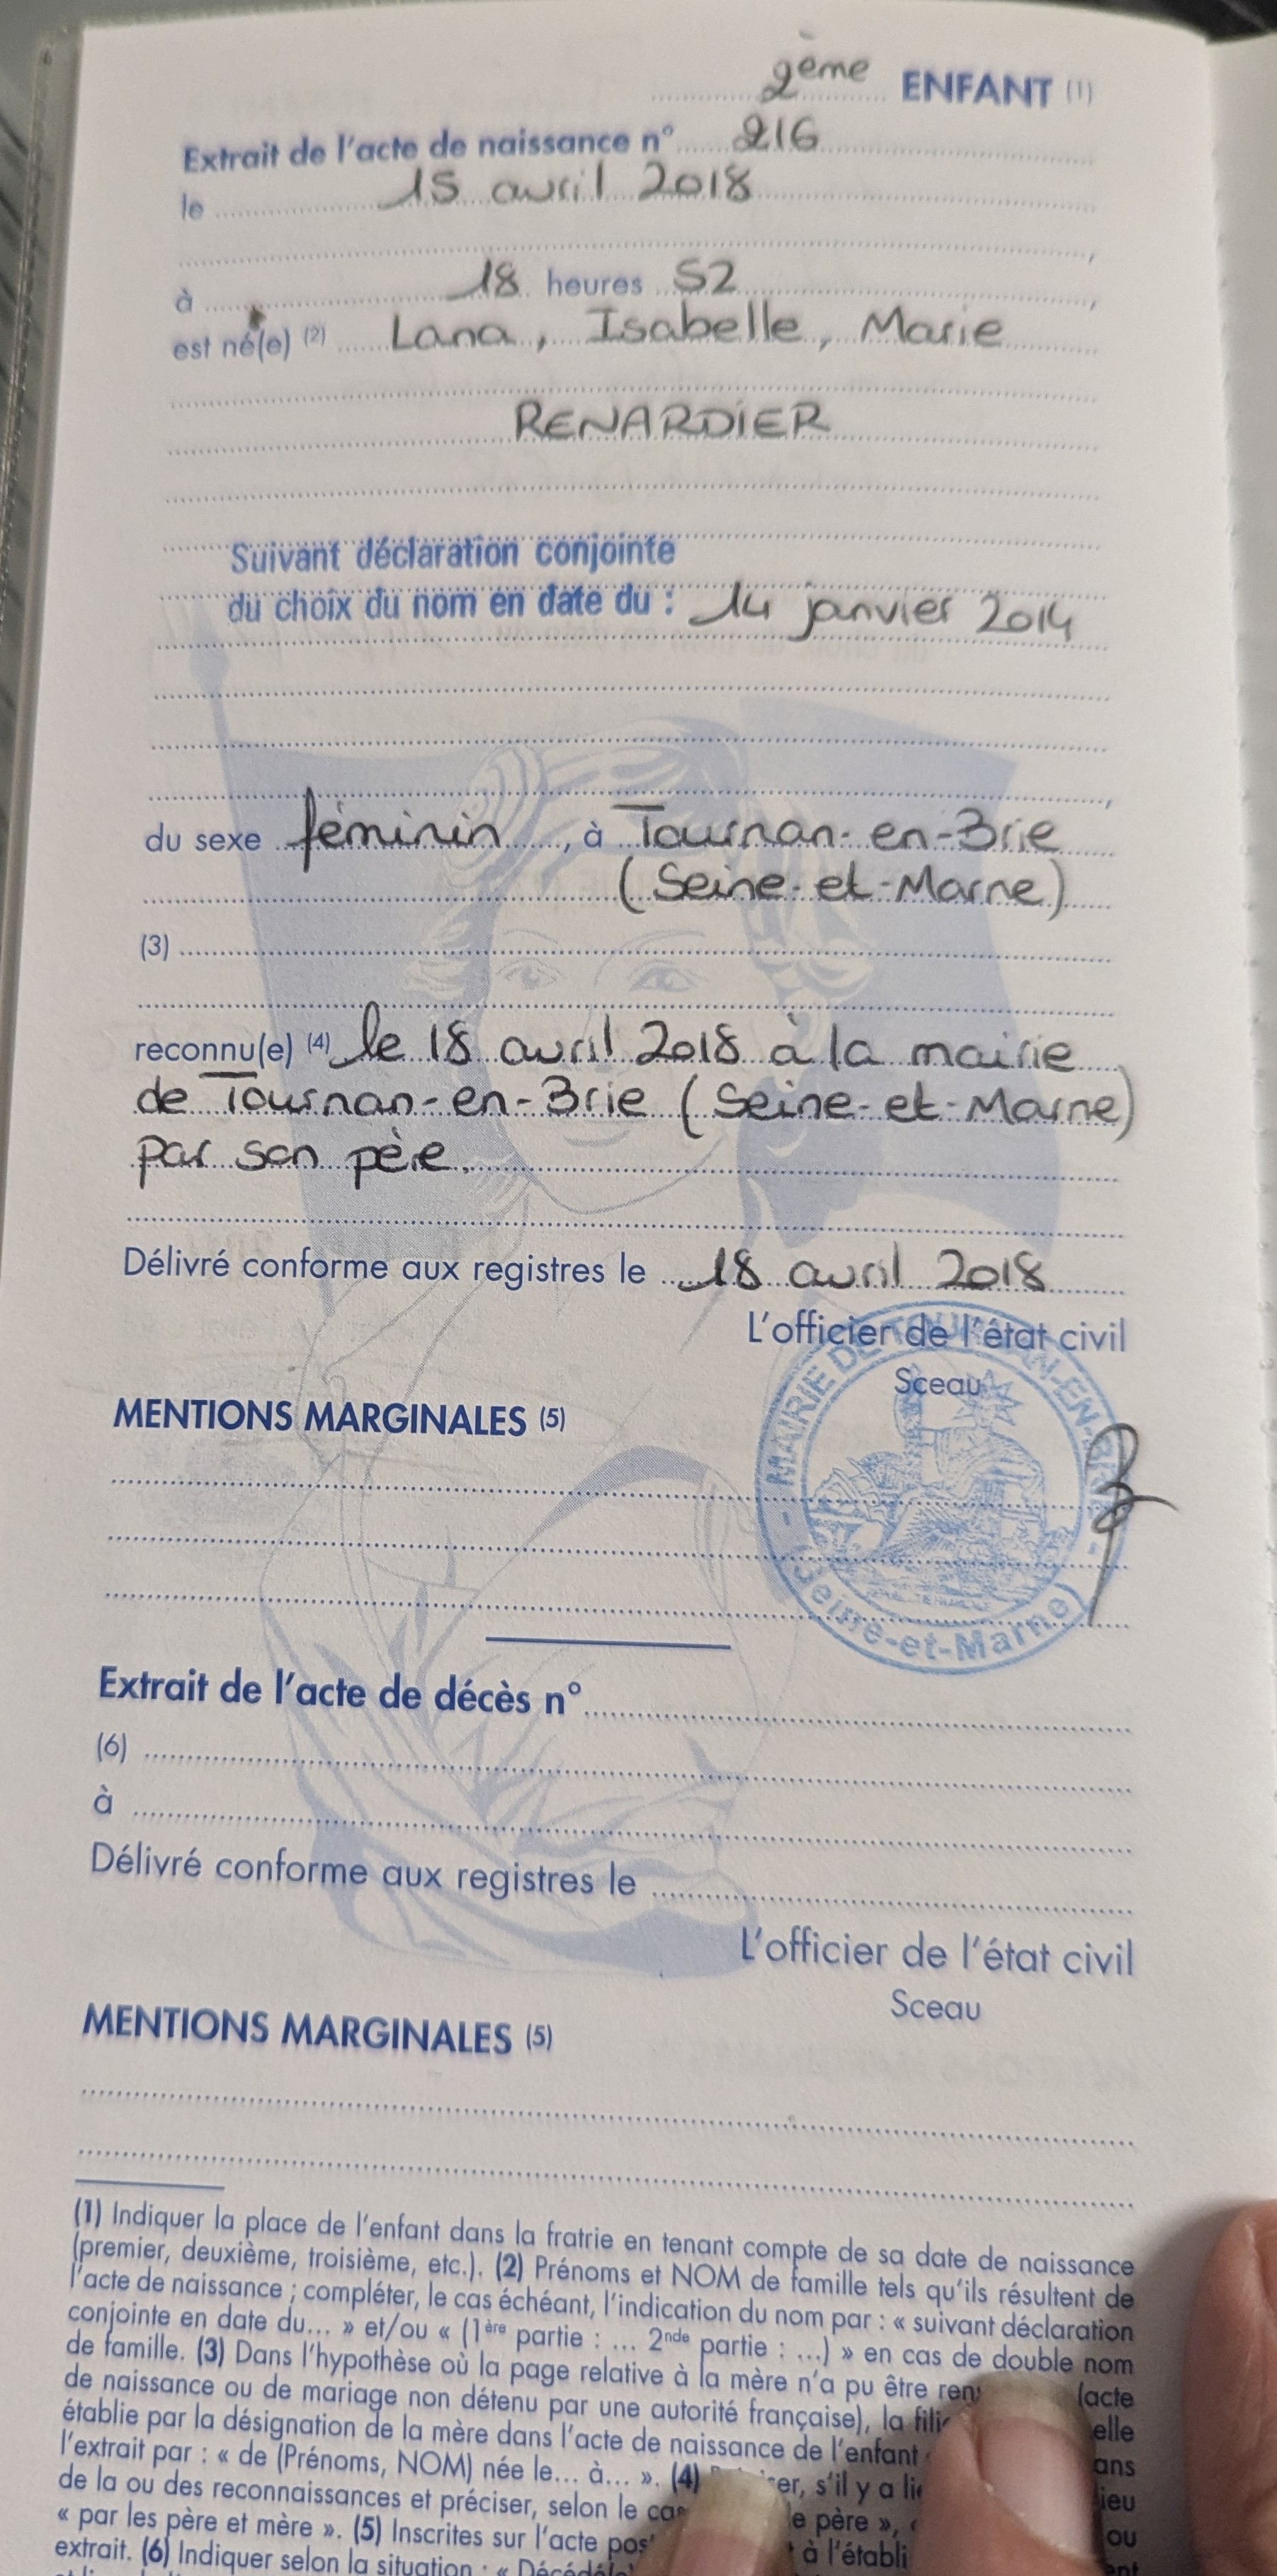 2ème ENFANT (1)
Extrait de l'acte de naissance n° 216
le 15 avril 2018
à 18 heures 52
est né(e) (2) Lana, Isabelle, Marie
RENARDIER
Suivant déclaration conjointe
du choix du nom en date du : 14 janvier 2014
du sexe féminin, à Tournan-en-Brie
(Seine-et-Marne)
(3)
reconnu(e) (4) le 18 avril 2018 à la mairie
de Tournan-en-Brie (Seine-et-Marne)
par son père.
Délivré conforme aux registres le 18 avril 2018
L'officier de l'état civil
Sceau
MAIRIE DE TOURNAN-EN-BRIE
(Seine-et-Marne)
MENTIONS MARGINALES (5)
Extrait de l'acte de décès n°
(6)
à
Délivré conforme aux registres le
L'officier de l'état civil
Sceau
MENTIONS MARGINALES (5)
(1) Indiquer la place de l'enfant dans la fratrie en tenant compte de sa date de naissance
(premier, deuxième, troisième, etc.). (2) Prénoms et NOM de famille tels qu'ils résultent de
l'acte de naissance ; compléter, le cas échéant, l'indication du nom par : « suivant déclaration
conjointe en date du... » et/ou « (1ère partie : ... 2nde partie : ...) » en cas de double nom
de famille. (3) Dans l'hypothèse où la page relative à la mère n'a pu être (acte
de naissance ou de mariage non détenu par une autorité française), la elle
établie par la désignation de la mère dans l'acte de naissance de l'enfant ans
l'extrait par : « de (Prénoms, NOM) née le... à... ». (4) s'il y a lieu
de la ou des reconnaissances et préciser, selon le cas le père », ou
« par les père et mère ». (5) Inscrites sur l'acte à l'établi
extrait. (6) Indiquer selon la situation : « Décédé(e)